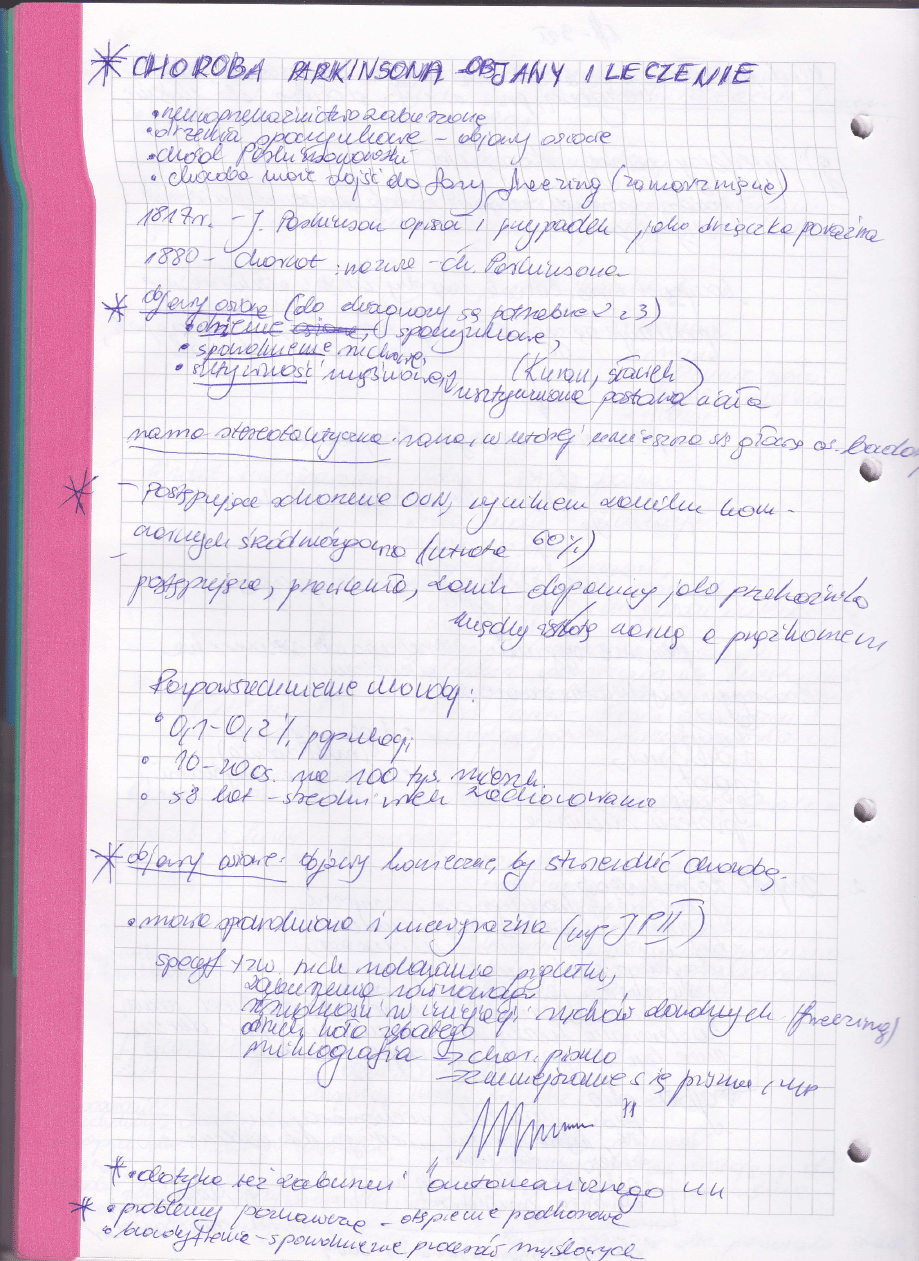 * CHOROBA PARKINSONA OBJAWY I LECZENIE
• neuroprzekaźnictwo zaburzone
• drżenia spoczynkowe – objawy osiowe
• chód Parkinsonowski
• choroba może dojść do fazy freezing (zamarznięcie)
1817r. – J. Parkinson opisał 1 przypadek jako drżączka poraźna
1880 – Charcot : nazwa – ch. Parkinsona
* objawy osiowe (do diagnozy są potrzebne 2 z 3)
• drżenie spoczynkowe,
• spowolnienie ruchowe,
• sztywność mięśniowa (Kuran, sławek)
usztywniona postawa ciała
rama stereotaktyczna: rama, w której umieszcza się głowę os. badan
* – postępujące schorzenie OUN, wynikiem zaniku kom-
nerwowych śródmózgowia (utrata 60%)
– postępująca, przewlekła, zanik dopaminy jako przekaźnika
między istotą czarną a prążkowiem
Rozpowszechnienie choroby:
• 0,1–0,2% populacji
• 10–20 os. na 100 tys. mieszk.
• 58 lat – średni wiek zachorowania
* objawy osiowe: objawy konieczne, by stwierdzić chorobę.
• mowa spowolniona i niewyraźna (np. JP II)
specyf tzw ruch
zaburzenia równowagi
trudności w inicjacji ruchów dowolnych (freezing)
objaw koła zębatego
mikrografia → char. pismo
→ zmniejszanie się pisma, np
* • dotyka też zaburzeń autonomicznego UN
* • problemy poznawcze – otępienie podkorowe
• bradyfrenia – spowolnienie procesów myślowych